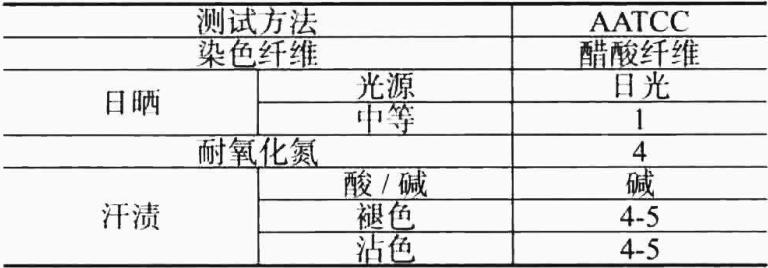 测试方法 AATCC
染色纤维 醋酸纤维
日晒 光源 日光
中等 1
耐氧化氮 4
汗渍 酸 / 碱 碱
褪色 4-5
沾色 4-5